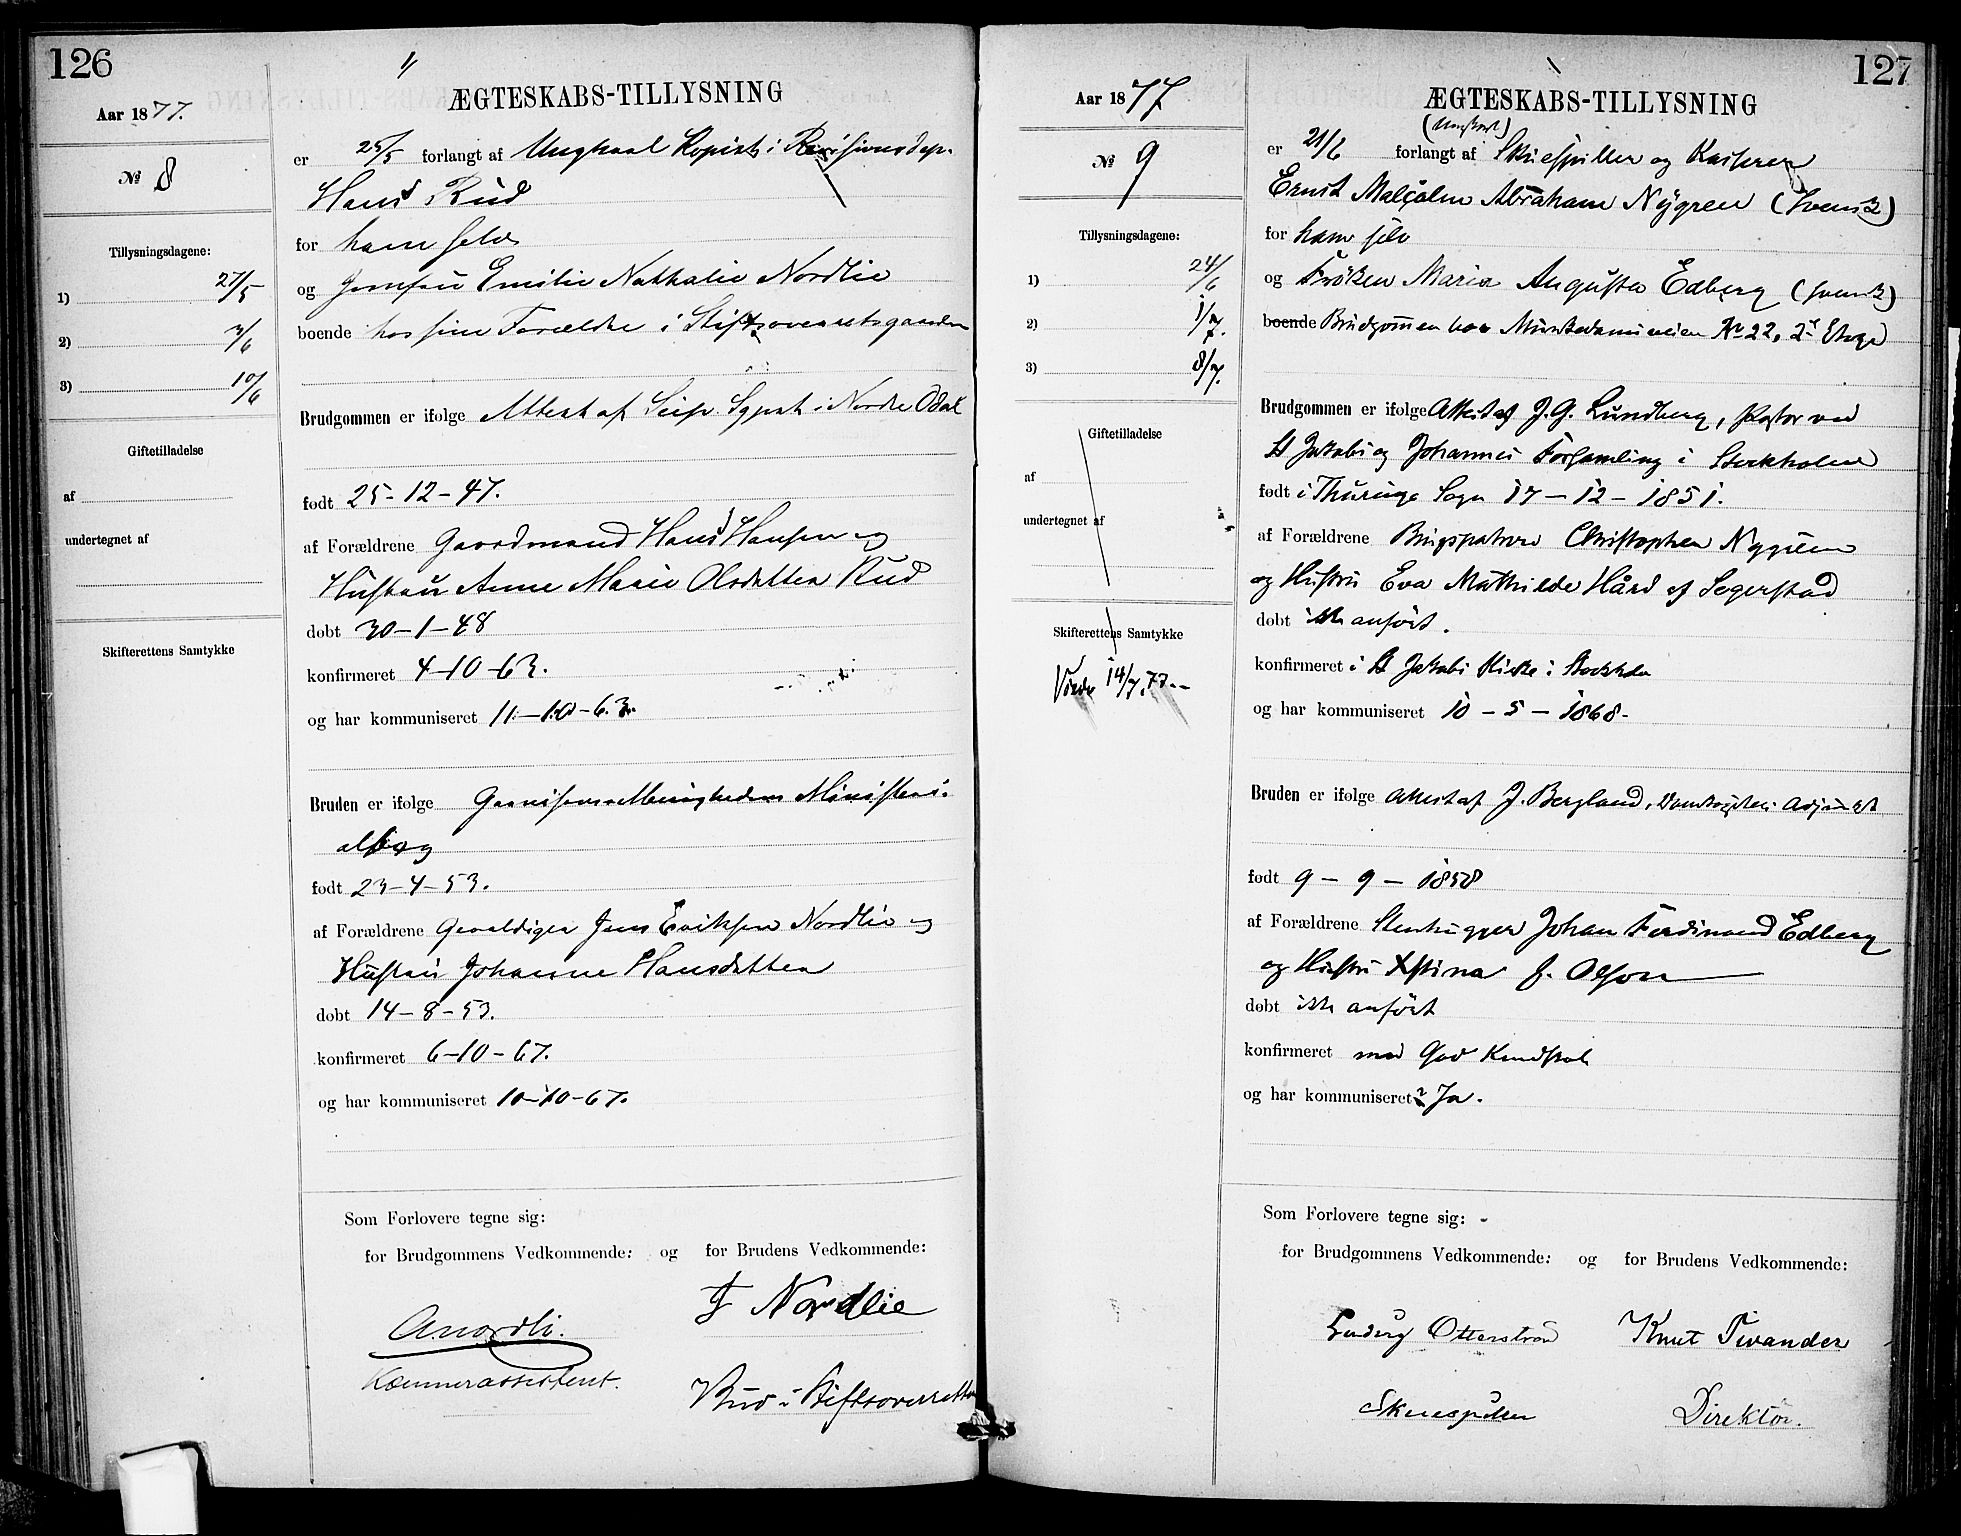 126
"
Aar 1877.
№ 8
Tillysningsdagene:
1) 27/5
2) 3/6
3) 10/6
Giftetilladelse
af
undertegnet af
Skifterettens Samtykke
ÆGTESKABS-TILLYSNING
er 25/5 forlangt af Ungkarl Kopist i Revisionsdep.
Hans Rud
for ham selv
og Jomfru Emilie Nathalie Nordlie
boende hos sine Forældre i Stiftsoverretsgaarden
Brudgommen er ifølge Attest af Sogpr. i Nordre Odal
født 25-12-47.
af Forældrene Gaardmand Hans Hansen og
Hustru Anne Marie Olsdatter Rud
døbt 30-1-48
konfirmeret 4-10-63.
og har kommuniseret 11-10-63.
Bruden er ifølge Garnisonsmenighedens Ministeri-
albog
født 23-4-53.
af Forældrene Gevaldiger Jens Eriksen Nordlie og
Hustru Johanne Hansdatter
døbt 14-8-53.
konfirmeret 6-10-67.
og har kommuniseret 10-10-67.
Som Forlovere tegne sig:
for Brudgommens Vedkommende: og for Brudens Vedkommende:
A Nordli.
Kæmnerassistent.
J Nordlie
Bud i Stiftsoverretten
127
Aar 1877
№ 9
Tillysningsdagene:
1) 24/6
2) 1/7.
3) 8/7.
Giftetilladelse
af
undertegnet af
Skifterettens Samtykke
Viede 14/7.77.
ÆGTESKABS-TILLYSNING
(Ungkarl)
er 21/6 forlangt af Skuespiller og Kasserer
Ernst Malcolm Abraham Nygren (svensk)
for ham selv
og Frøken Maria Augusta Edberg (svensk)
boende Brudgommen bor Munkedamsveien No 22, 2d Etage
Brudgommen er ifølge Attest af J. G. Lundberg, Pastor ved
St Jakobs og Johannes Församling i Stockholm
født i Thuringe Sogn 17-12-1851.
af Forældrene Brugspatron Christopher Nygren
og Hustru Eva Mathilde Hård af Segerstad
døbt ikke anført.
konfirmeret i St Jakobs Kirke i Stockholm
og har kommuniseret 10-5-1868-
Bruden er ifølge Attest af J. Berglund, Adjunkt
født 9-9-1858
af Forældrene Stenhugger Johan Ferdinand Edberg
og Hustru Xstina J. Olson
døbt ikke anført
konfirmeret med God Kundskab
og har kommuniseret? Ja.
Som Forlovere tegne sig:
for Brudgommens Vedkommende: og for Brudens Vedkommende:
Ludvig Otterström
Skuespiller
Knut Tivander
Direktör.